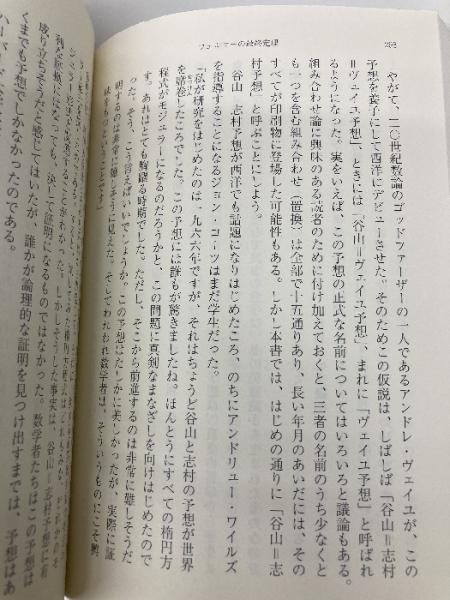 フェルマーの最終定理
やがて、二〇世紀数論のゴッドファーザーの一人であるアンドレ・ヴェイユが、この
予想を養子にして西洋にデビューさせた。そのためこの仮説は、しばしば「谷山＝志村
＝ヴェイユ予想」、ときには「谷山＝ヴェイユ予想」、まれに「ヴェイユ予想」と呼ばれ
るようになった。実をいえば、この予想の正式な名前についてはいろいろと議論もある。
組み合わせ論に興味のある読者のために付け加えておくと、三者の名前のうち少なくと
も一つを含む組み合わせ（置換）は全部で十五通りあり、長い年月のあいだには、その
すべてが印刷物に登場した可能性もある。しかし本書では、はじめの通りに「谷山＝志
村予想」と呼ぶことにしよう。
谷山＝志村予想が西洋でも話題になりはじめたころ、のちにアンドリュー・ワイルズ
を指導することになるジョン・コーツはまだ学生だった。
「私が研究をはじめたのは一九六六年ですが、それはちょうど谷山と志村の予想が世界
を席巻したころでした。この予想には誰もが驚きましたね。ほんとうにすべての楕円方
程式がモジュラーになるのだろうかと、この問題に真剣なまなざしを向けはじめたので
す。あれはとても胸躍る時期でした。ただし、そこから前進するのは非常に難しそうだ
った。そう、こう言えばいいでしょうか。この予想はたしかに美しかったが、実際に証
明するのは非常に難しそうに見えた。そしてわれわれ数学者は、そういうものにこそ興
味をもつということです」
成り立ちそうだと感じてはいたが、誰かが論理的な証明を見つけ出すまでは、予想はあ
くまでも予想でしかなかったのである。